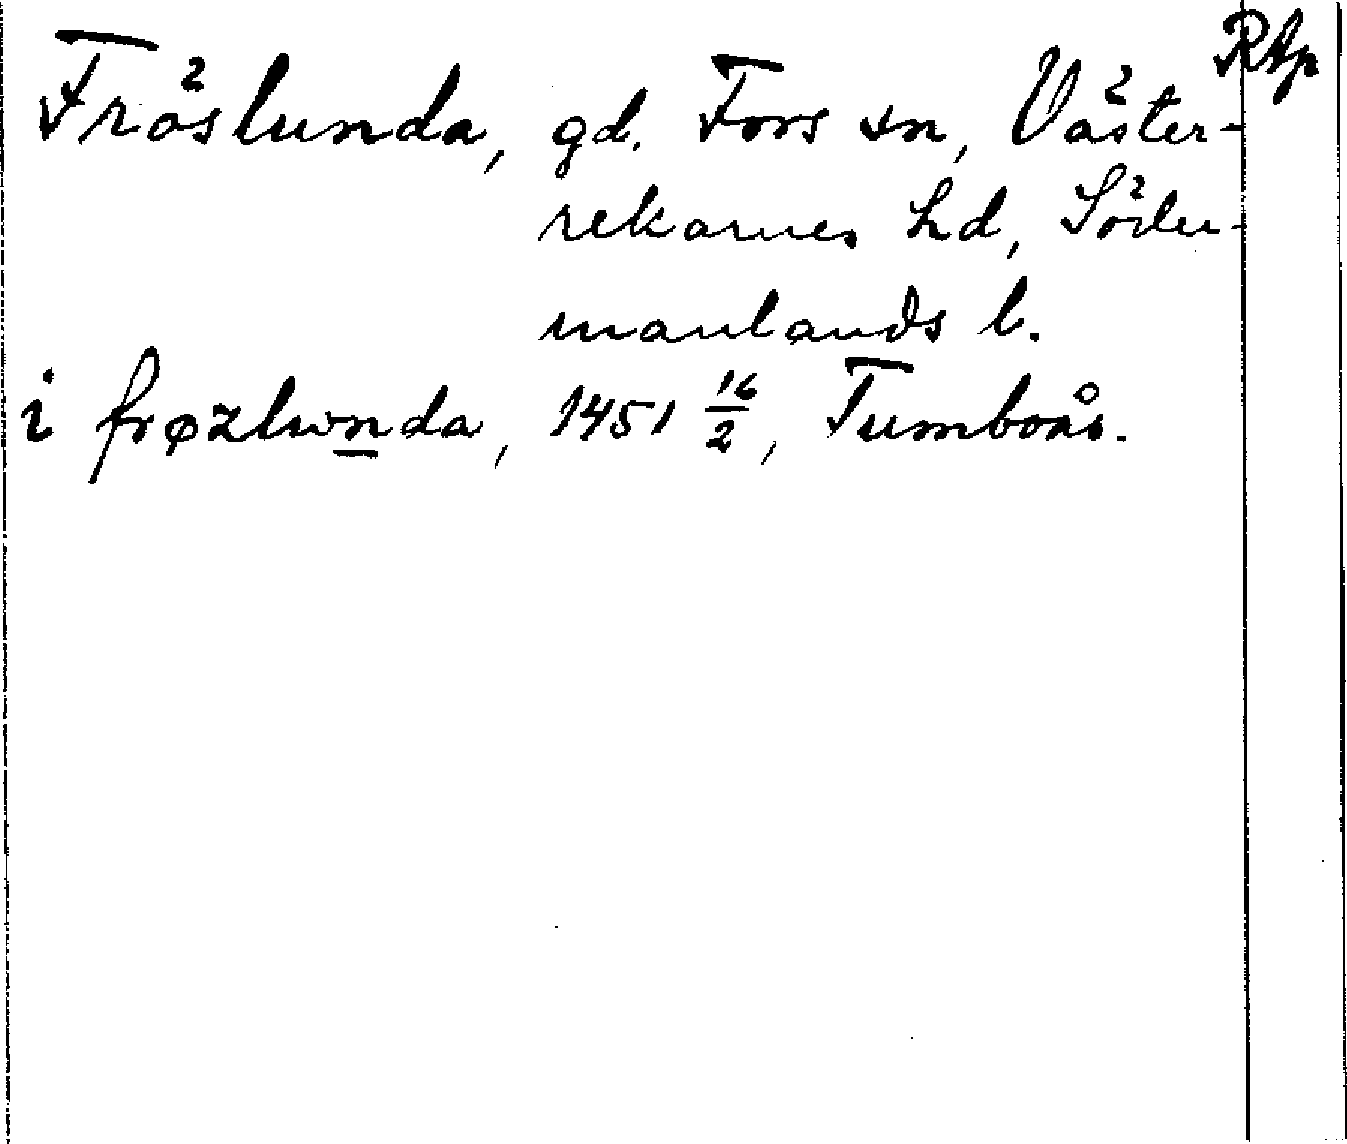 Rtp
Fröslunda, gd. Fors sn, Väster-
rekarnes hd, Söder-
manlands l.
i frøzlwnda, 1451 16/2, Tumboås.